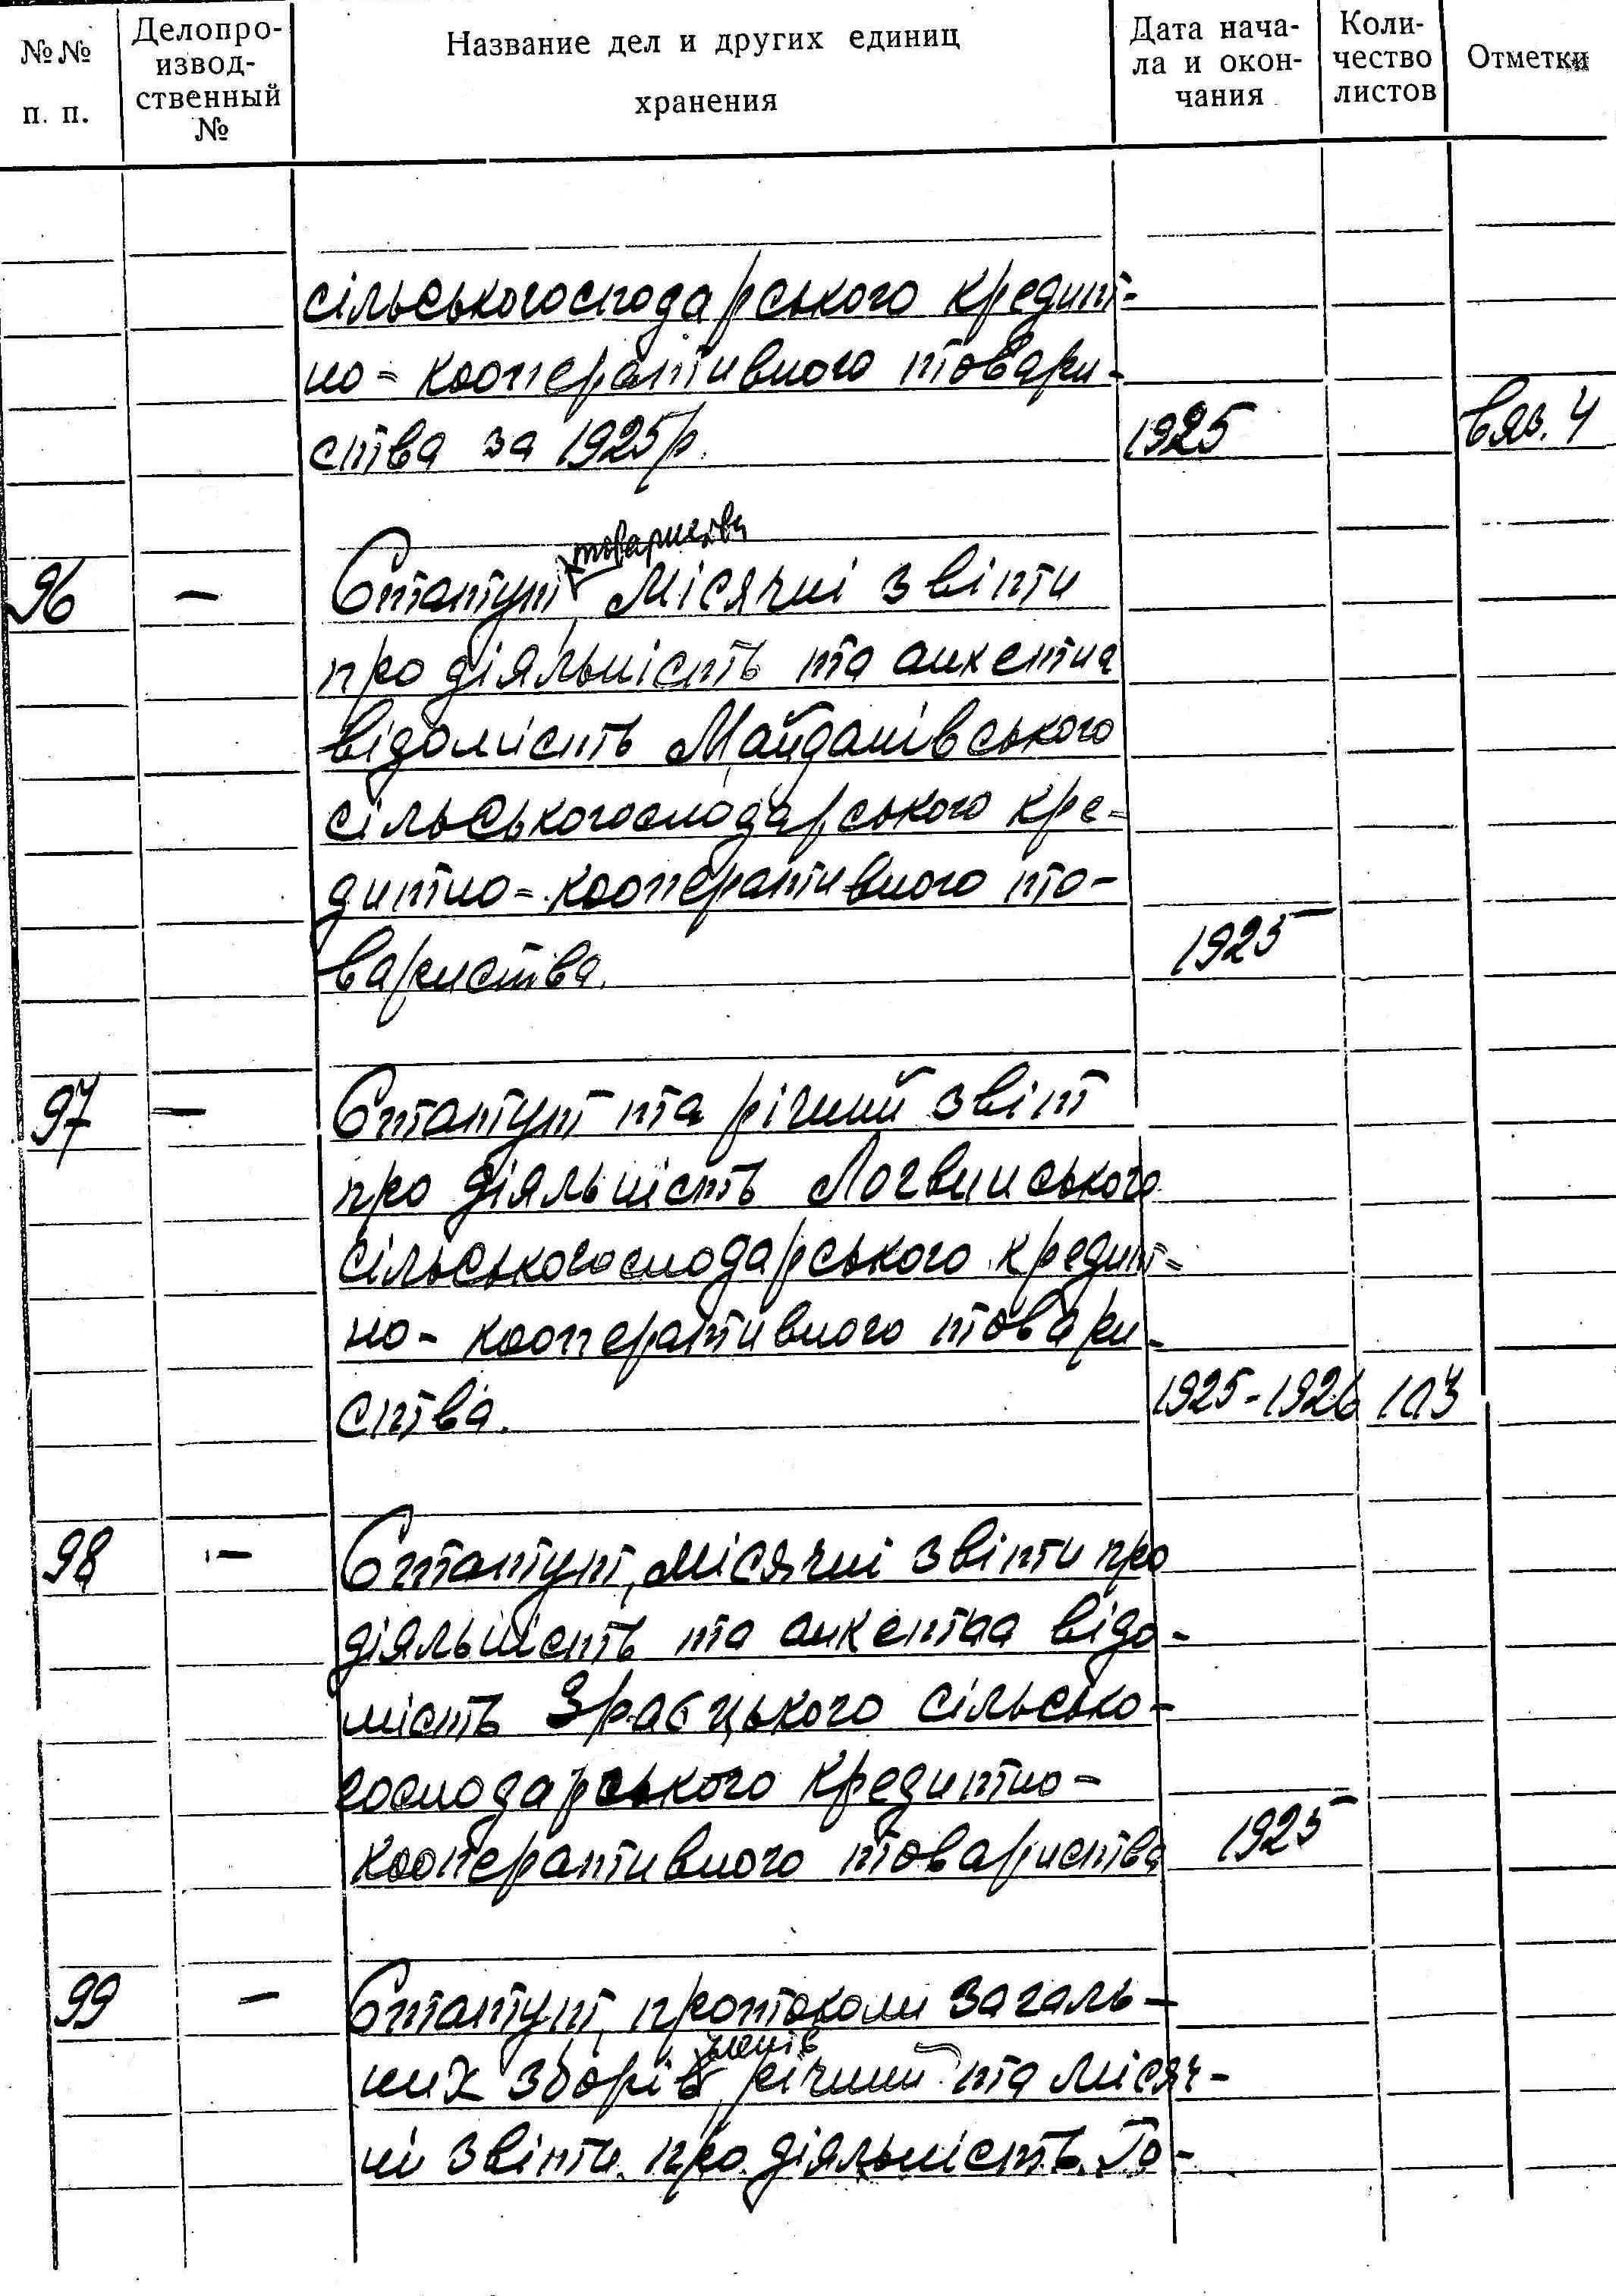 №№ п. п.
Делопро-
извод-
ственный
№
Название дел и других единиц
хранения
Дата нача-
ла и окон-
чания
Коли-
чество
листов
Отметки
сільськогосподарського кредит-
но-кооперативного товари-
ства за 1925р. 1925 вяз. 4
товариства
96 — Статут, місячні звіти
про діяльність та анкетна
відомість Майданівського
сільськогосподарського кре-
дитно-кооперативного то-
вариства. 1925
97 — Статут та річний звіт
про діяльність Логвинського
сільськогосподарського кредит-
но-кооперативного товари-
ства. 1925-1926 103
98 — Статут, місячні звіти про
діяльність та анкетна відо-
мість сільсько-
господарського кредитно-
кооперативного товариства 1925
99 — Статут, протоколи загаль-
членів
них зборів, річний та місяч-
ні звіти про діяльність Го-